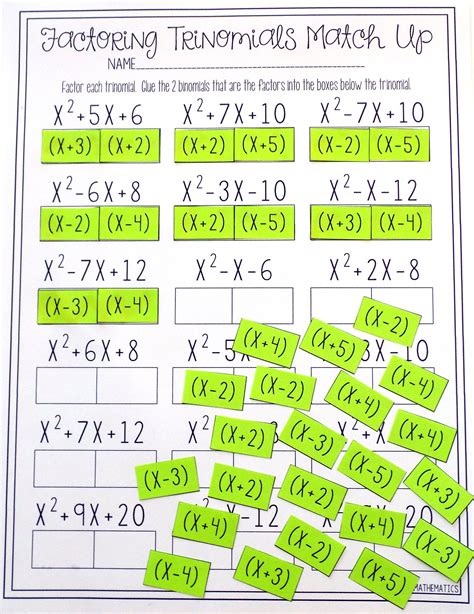 Factoring Trinomials Match Up
NAME
Factor each trinomial. Glue the 2 binomials that are the factors into the boxes below the trinomial.
X²+5X+6 X²+7X+10 X²-7X+10
(X+3) (X+2) (X+2) (X+5) (X-2) (X-5)
X²-6X+8 X²-3X-10 X²-X-12
(X-2) (X-4) (X+2) (X-5) (X+3) (X-4)
X²-7X+12 X²-X-6 X²+2X-8
(X-3) (X-4)
(X-2)
(X+4) (X+5)
X²+6X+8 X²-5X 3X-10
(X-2) (X-2) (X+4) (X-4)
X²+7X+12
(X+2) (X-3) (X+4)
(X-3) (X+2) (X+2) (X-5) (X+3)
X²+9X+20 -12
(X+4) (X-2) (X+4) (X-3)
(X-4) (X+3) (X+5)
MATHEMATICS